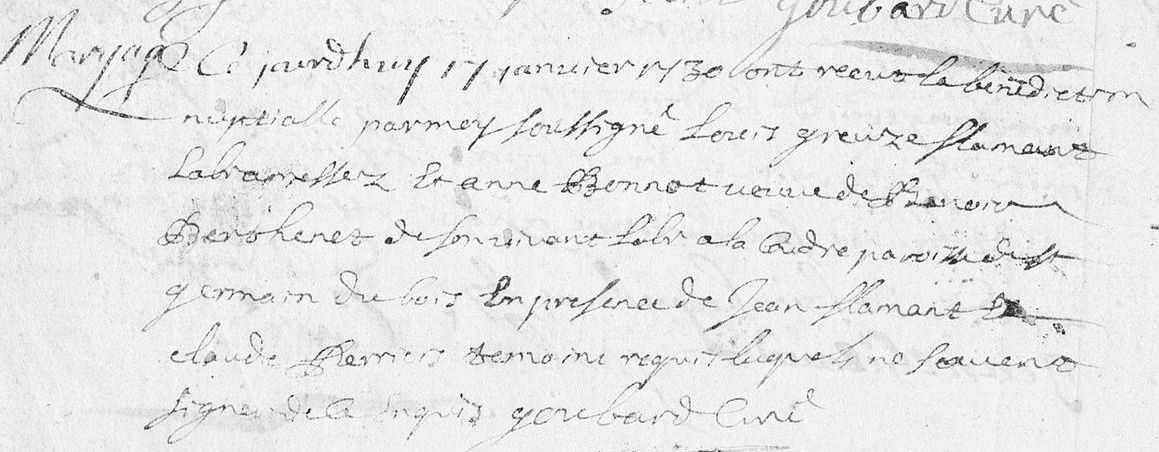 goubard Curé
Maryage Ce jourdhuy 17 janvier 1730 ont receut la bénédiction
nuptialle par moy soussigné Louis greuze flamant
Labr a Et anne Bonnot veuve de Benoir
Berthenet de son vivant labr a la Coudre paroisse de st
germain du bois En presence de Jean flamant Et
claude Perriers temoins requis lequels ne scavent
signer de ce Enquis goubard Curé